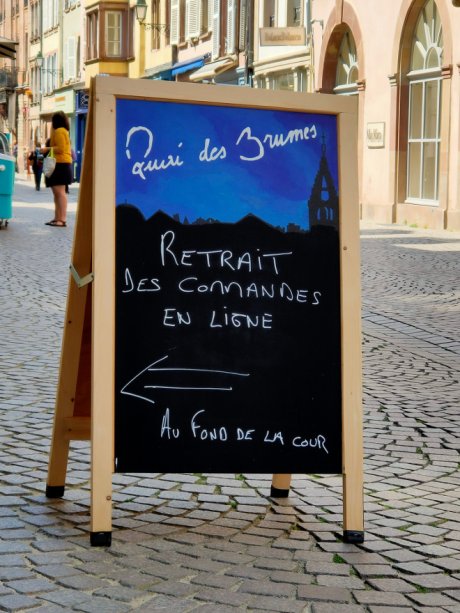 Quai des Brumes
RETRAIT
DES COMMANDES
EN LIGNE
AU FOND DE LA COUR